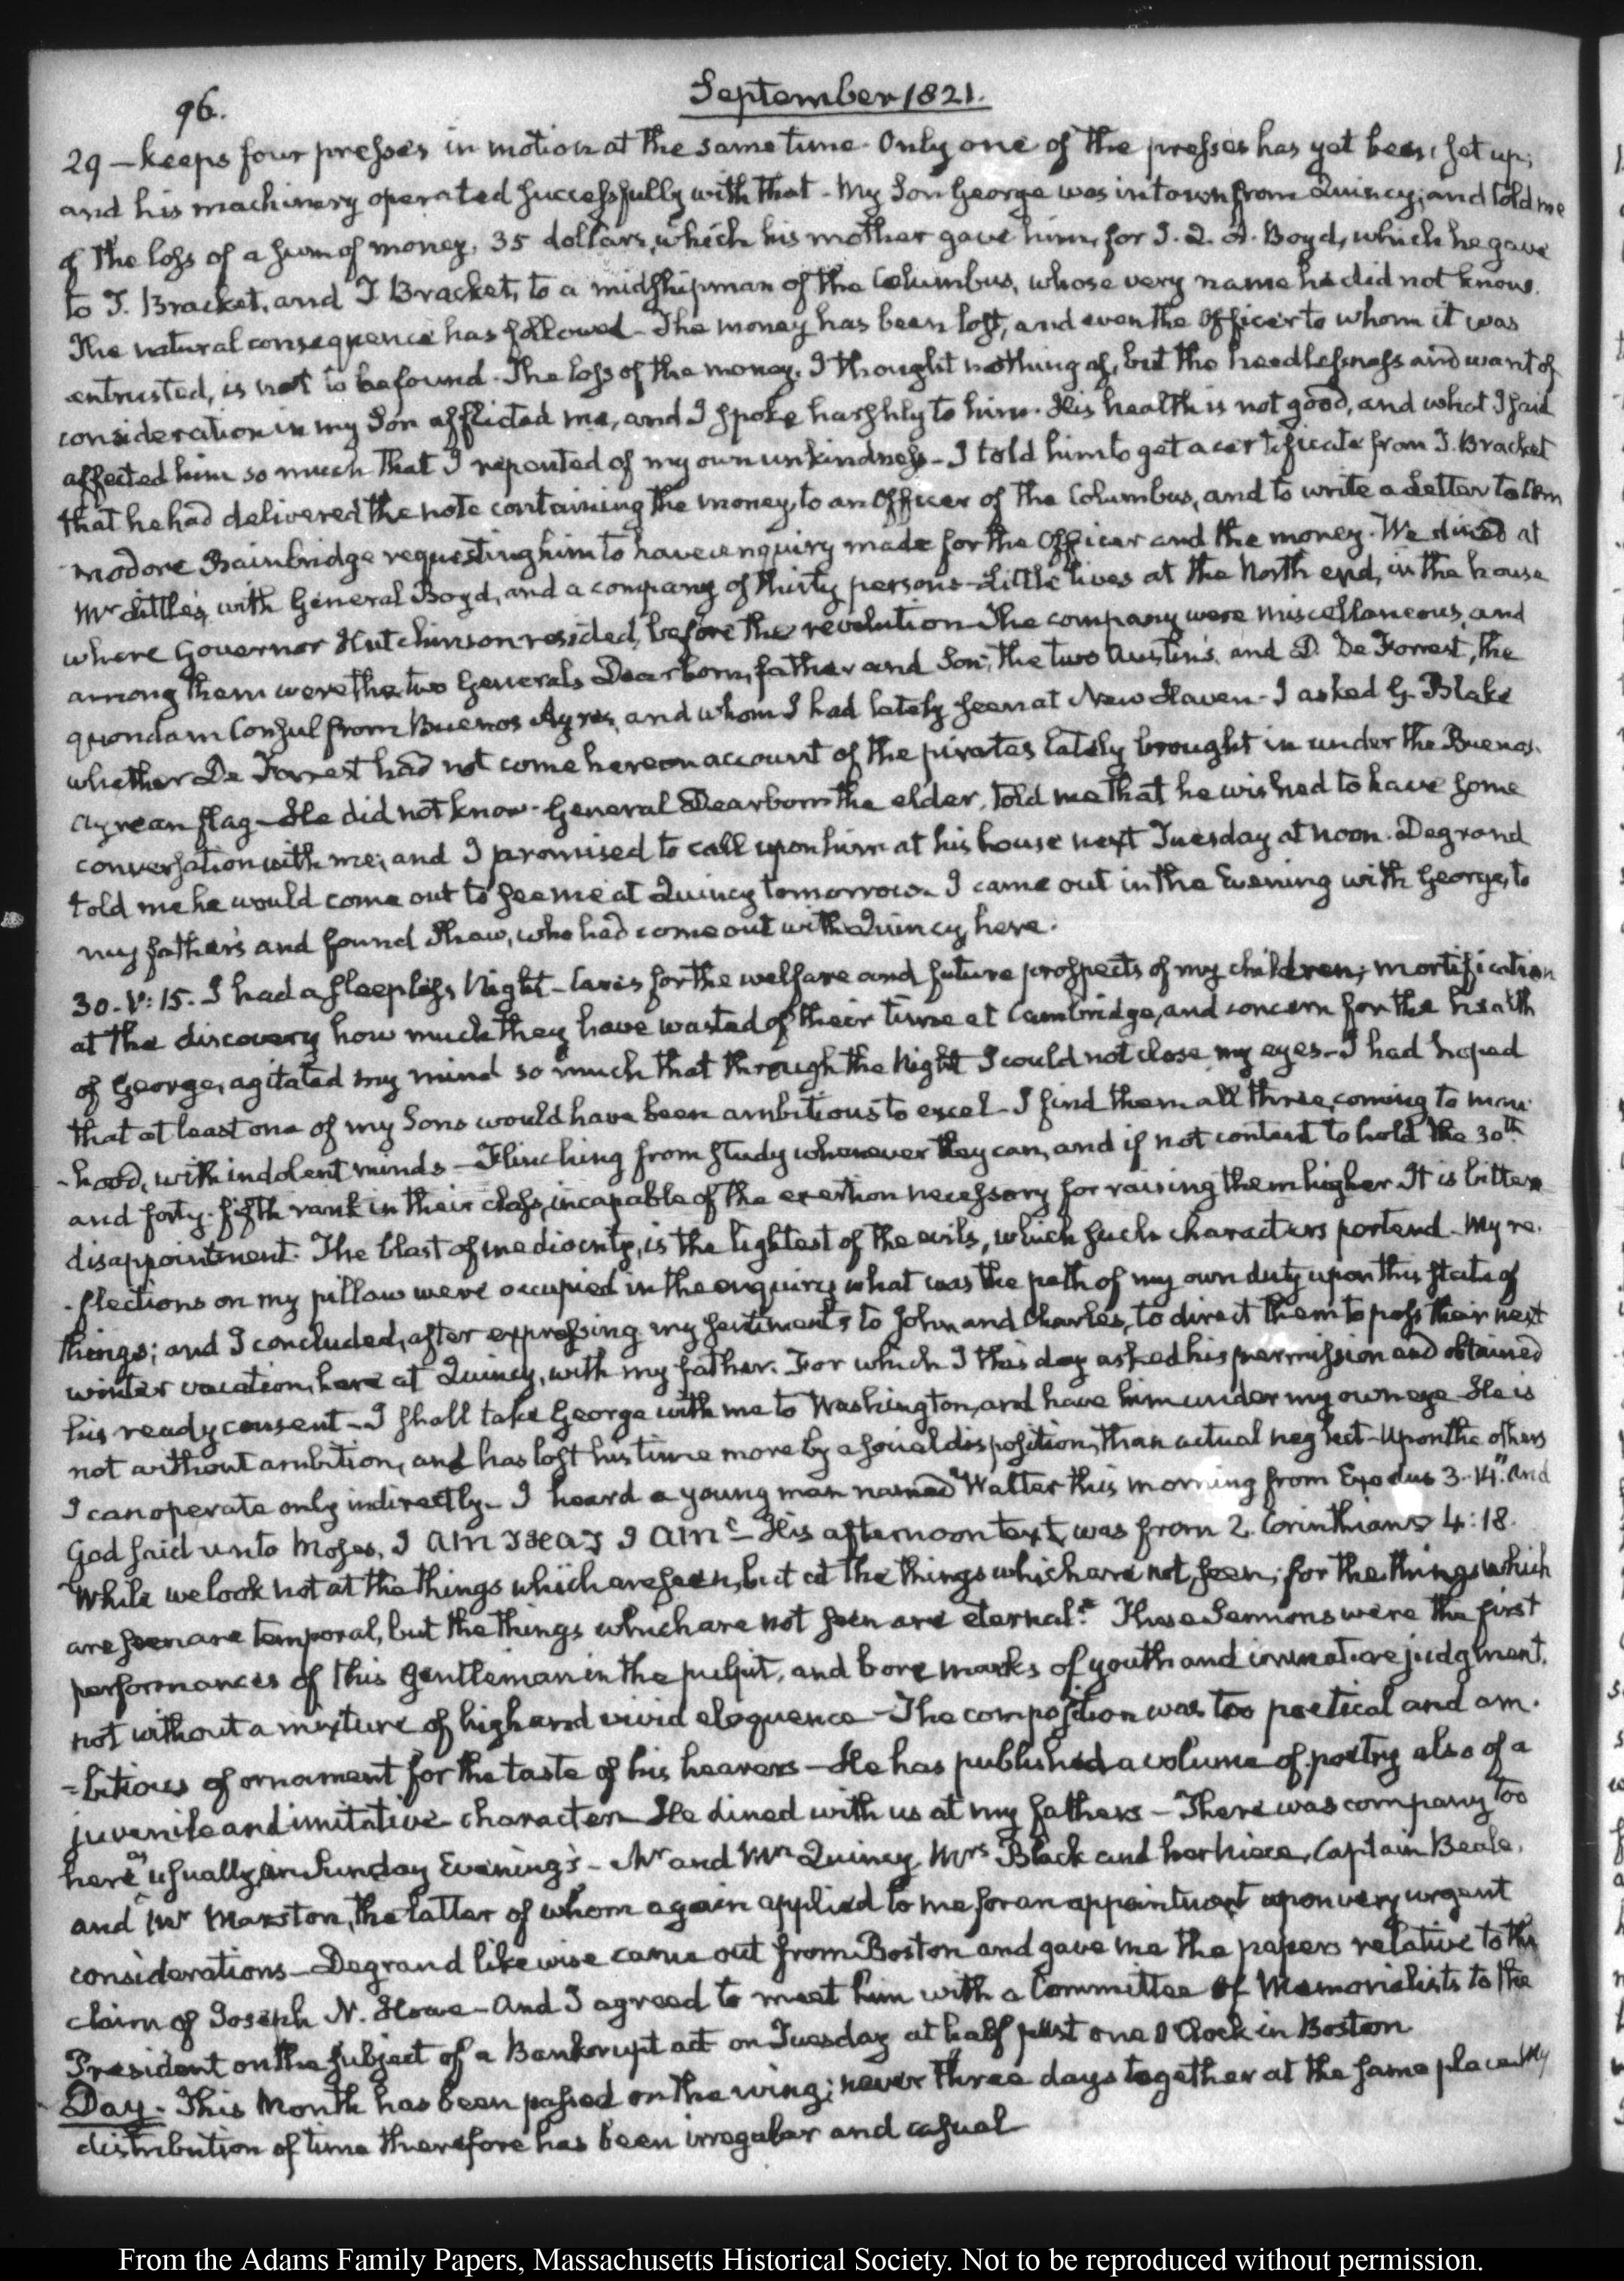 96.
September 1821.
29 — keeps four presses in motion at the same time. Only one of the presses has yet been set up;
and his machinery operated successfully with that - My Son George was in town from Quincy; and told me
of the loss of a sum of money, 35 dollars, which his mother gave him, for J. Q. A. Boyd, which he gave
to J. Bracket, and J Bracket, to a midshipman of the Columbus, whose very name he did not know.
The natural consequence has followed - The money has been lost, and even the Officer to whom it was
entrusted, is not to be found. The loss of the money, I thought nothing of, but the heedlessness and want of
consideration in my Son afflicted me, and I spoke harshly to him. His health is not good, and what I said
affected him so much that I repented of my own unkindness - I told him to get a certificate from J. Bracket
that he had delivered the note containing the money, to an Officer of the Columbus, and to write a Letter to Com
modore Bainbridge requesting him to have enquiry made for the Officer and the money. We dined at
Mr Little's, with General Boyd, and a company of thirty persons - Little lives at the North end, in the house
where Governor Hutchinson resided, before the revolution The company were miscellaneous, and
among them were the two Generals Dearborn, father and Son, the two Austin's, and D. De Forrest, the
quondam Consul from Buenos Ayres, and whom I had lately seen at New Haven - I asked G. Blake
whether De Forrest had not come here on account of the pirates lately brought in under the Buenos-
ayrean flag - He did not know - General Dearborn the elder, told me that he wished to have some
conversation with me; and I promised to call upon him at his house next Tuesday at noon. Degrand
told me he would come out to see me at Quincy tomorrow. I came out in the Evening with George, to
my father's and found Shaw, who had come out with Quincy here.
30. V: 15. I had a sleepless Night - Cares for the welfare and future prospects of my children; mortification
at the discovery how much they have wasted of their time at Cambridge, and concern for the health
of George, agitated my mind so much that through the Night I could not close my eyes - I had hoped
that at least one of my Sons would have been ambitious to excel - I find them all three, coming to man-
-hood, with indolent minds - Flinching from study whenever they can, and if not content to hold the 30th
and forty-fifth rank in their class, incapable of the exertion necessary for raising them higher. It is bitter
disappointment. The blast of mediocrity, is the lightest of the evils, which such characters portend. My re-
-flections on my pillow were occupied in the enquiry what was the path of my own duty upon this state of
things; and I concluded, after expressing my sentiments to John and Charles, to direct them to pass their next
winter vacation, here at Quincy, with my father. For which I this day asked his permission and obtained
his ready consent - I shall take George with me to Washington, and have him under my own eye - He is
not without ambition, and has lost his time more by a social disposition, than actual neglect - Upon the others
I can operate only indirectly - I heard a young man named Walter this morning from Exodus 3.14. "And
God said unto Moses, I AM THAT I AM" - His afternoon text, was from 2. Corinthians 4:18.
"While we look not at the things which are seen, but at the things which are not seen; for the things which
are seen are temporal, but the things which are not seen are eternal." These Sermons were the first
performances of this Gentleman in the pulpit, and bore marks of youth and immature judgment,
not without a mixture of high and vivid eloquence - The composition was too poetical and am-
=bitious of ornament for the taste of his hearers - He has published a volume of poetry also of a
juvenile and imitative character He dined with us at my fathers - There was company too
here as usually in Sunday Evening's - Mr and Mrs Quincy, Mrs Black and her niece, Captain Beale,
and Mr Marston, the latter of whom again applied to me for an appointment upon very urgent
considerations - Degrand likewise came out from Boston and gave me the papers relative to the
claim of Joseph N. Howe - And I agreed to meet him with a Committee of Memorialists to the
President on the subject of a Bankrupt act on Tuesday at half past one O'Clock in Boston
Day. This Month has been passed on the wing; never three days together at the same place My
distribution of time therefore has been irregular and casual
From the Adams Family Papers, Massachusetts Historical Society. Not to be reproduced without permission.